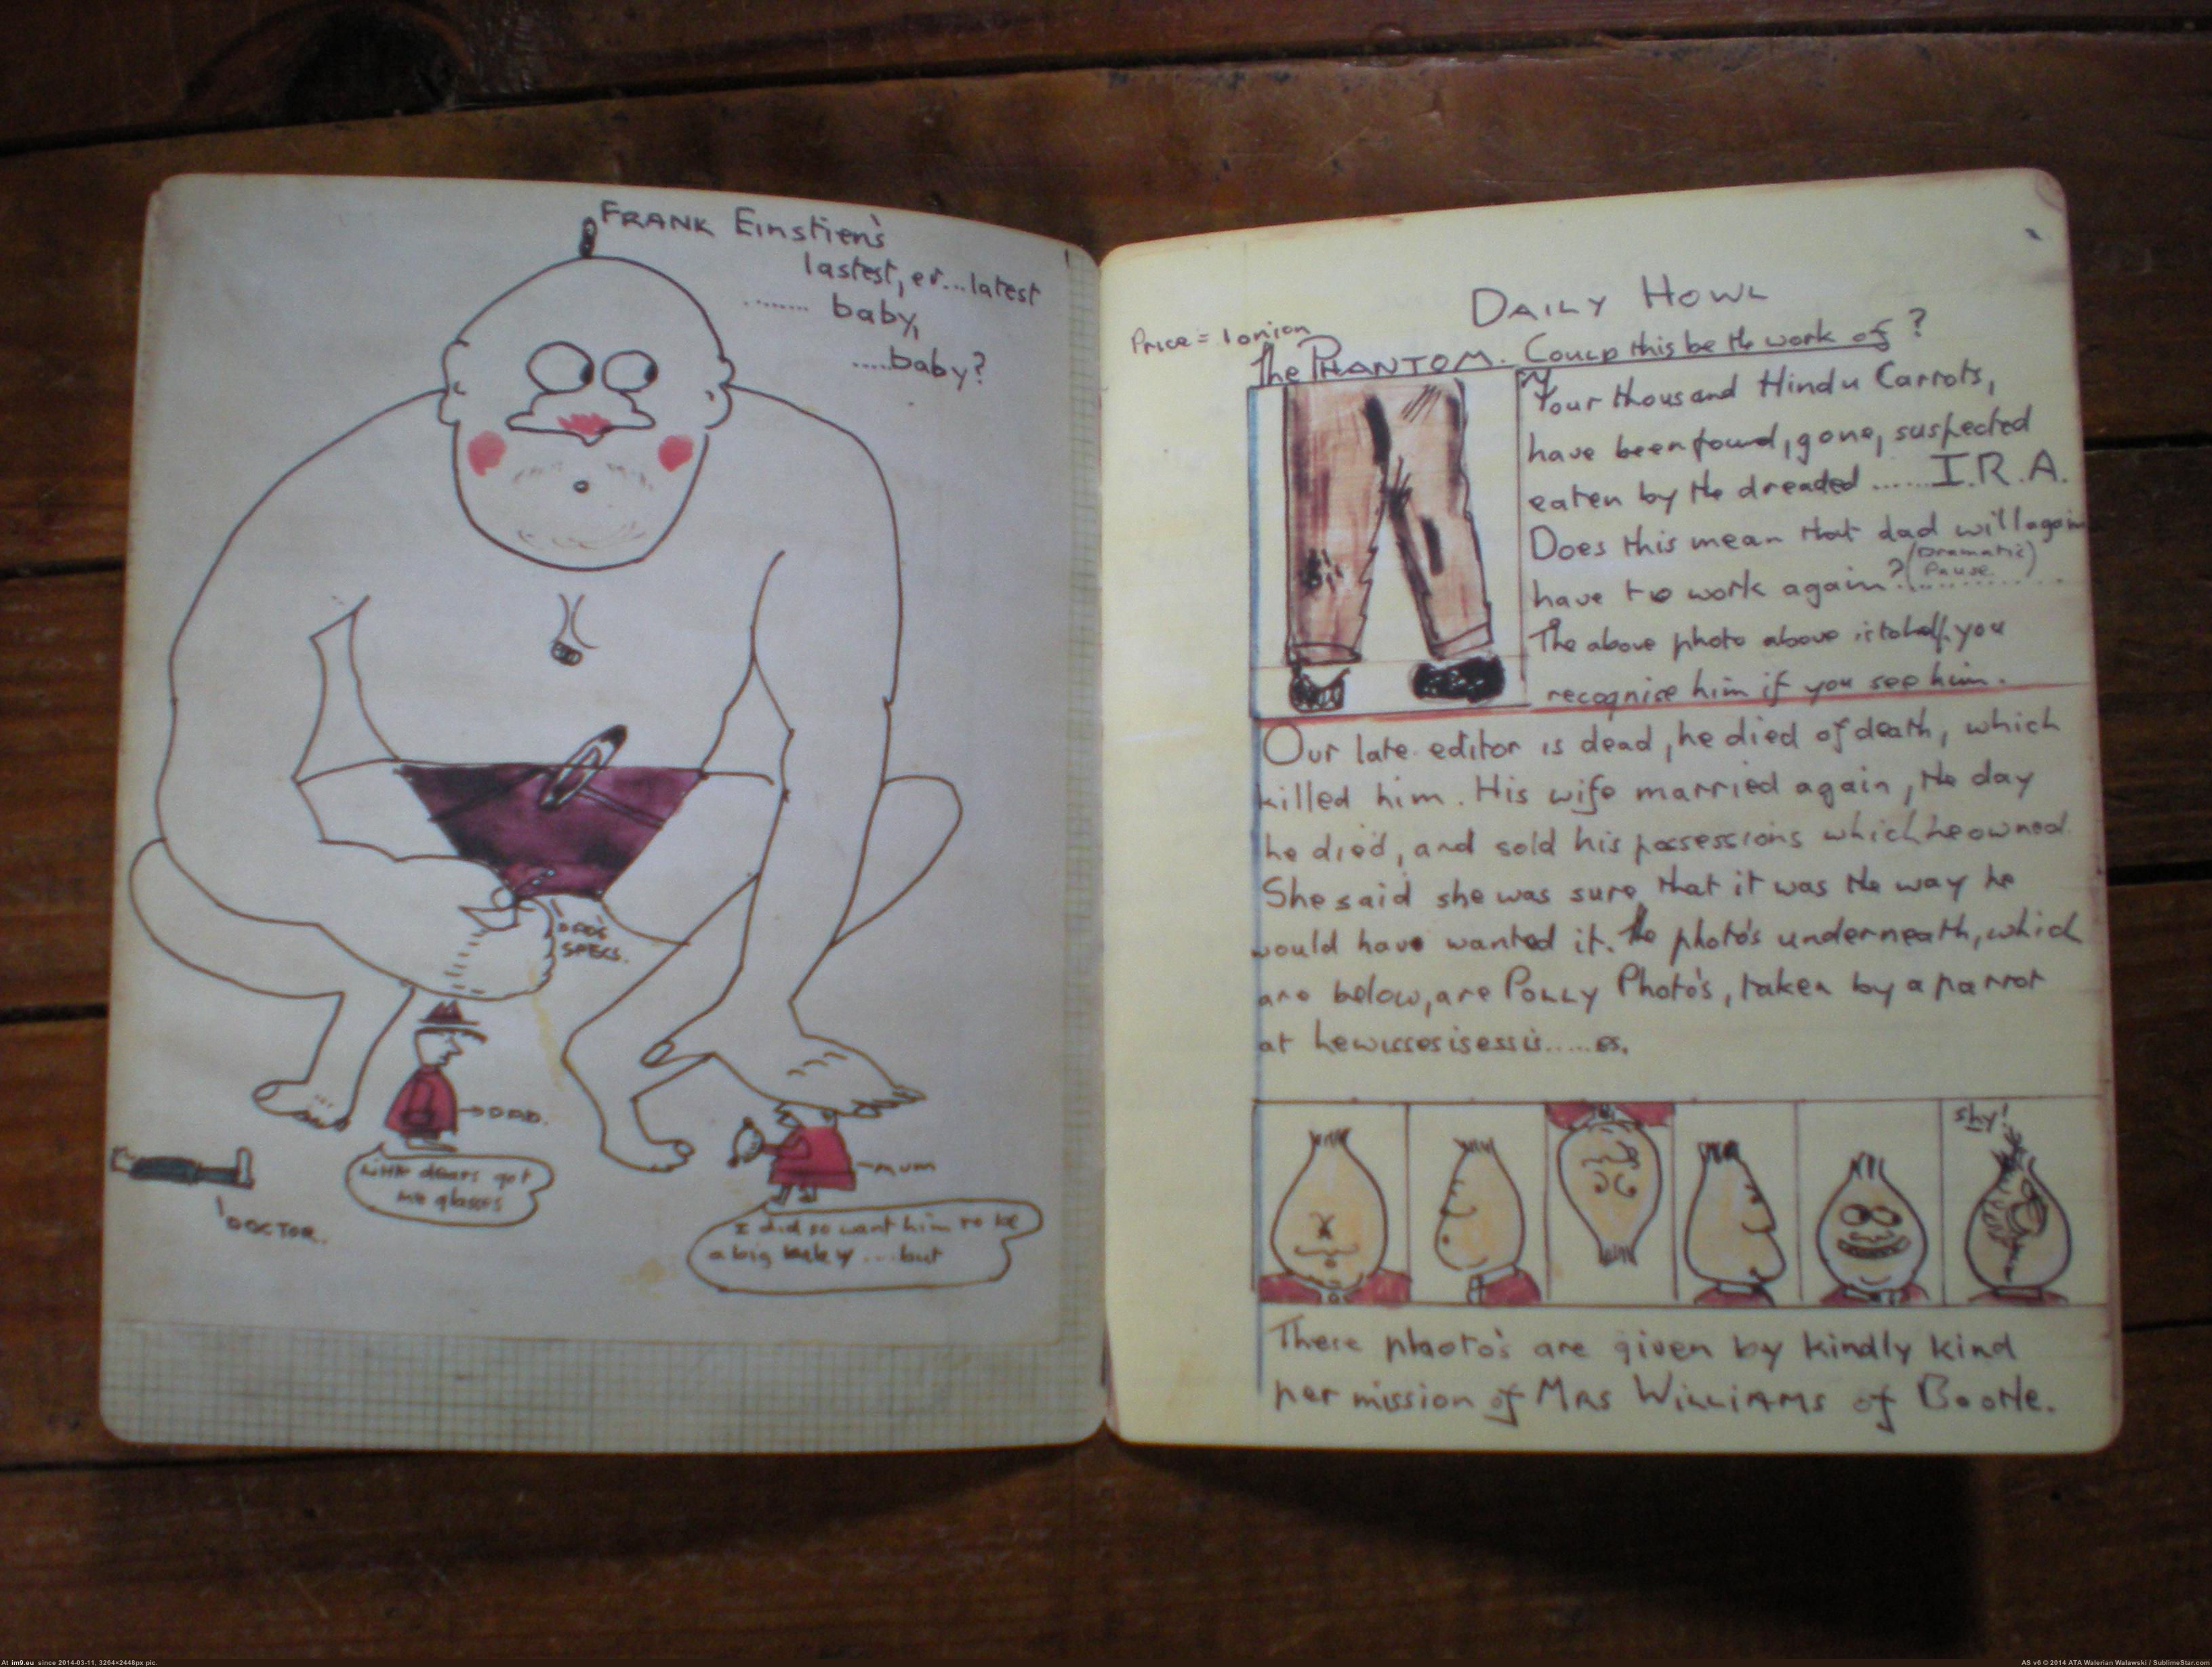 FRANK Einstien's
lastest, er...latest
....... baby,
....baby?
DAD'S
SPECS.
DAD.
DOCTOR.
Little dears got
me glasses
mum
I did so want him to be
a big baby ....but
DAILY HOWL
Price = 1 onion
The PHANTOM. Could this be the work of ?
Four thousand Hindu Carrots,
have been found, gone, suspected
eaten by the dreaded ...... I.R.A.
Does this mean that dad will again
have to work again? (Dramatic Pause) ............
The above photo above is to help you
recognise him if you see him.
Our late editor is dead, he died of death, which
killed him. His wife married again, the day
he died, and sold his possessions which he owned.
She said she was sure that it was the way he
would have wanted it. The photo's underneath, which
are below, are POLLY Photo's, taken by a parrot
at hewissesisessis.....es.
shy!
These phaoto's are given by kindly kind
permission of MRS WILLIAMS of Bootle.
At im9.eu since 2014-03-11, 3264×2448px pic.
AS v6 © 2014 ATA Walerian Walawski / SublimeStar.com